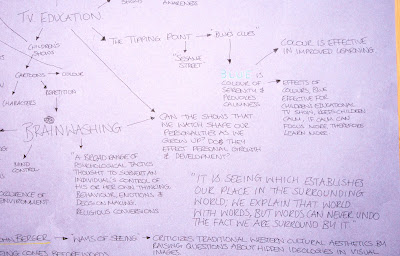 TV EDUCATION
AWARENESS
THE TIPPING POINT → "BLUES CLUES"
CHILDREN'S
SHOWS
"SESAME
STREET"
COLOUR IS EFFECTIVE
IN IMPROVED LEARNING
CARTOONS → COLOUR
REPETITION
CHARACTERS
BLUE IS
COLOUR OF
SERENITY &
PRODUCES
CALMNESS
EFFECTS OF
COLOURS, BLUE
EFFECTIVE FOR
CHILDREN'S EDUCATIONAL
TV SHOWS, KEEPS CHILDREN
CALM, IF CALM CAN
FOCUS MORE, THEREFORE
LEARN MORE
BRAINWASHING
CAN THE SHOWS THAT
WE WATCH SHAPE OUR
PERSONALITIES AS WE
GROW UP? DO THEY
EFFECT PERSONAL GROWTH
& DEVELOPMENT?
MIND CONTROL
"A BROAD RANGE OF
PSYCHOLOGICAL TACTICS
THOUGHT TO SUBVERT AN
INDIVIDUAL'S CONTROL OF
HIS OR HER OWN THINKING,
BEHAVIOUR, EMOTIONS &
DECISION MAKING.
RELIGIOUS CONVERSIONS
OF ENVIRONMENT
"IT IS SEEING WHICH ESTABLISHES
OUR PLACE IN THE SURROUNDING
WORLD; WE EXPLAIN THAT WORLD
WITH WORDS, BUT WORDS CAN NEVER UNDO
THE FACT WE ARE SURROUND BY IT"
JOHN BERGER → WAYS OF SEEING → CRITICIZES TRADITIONAL WESTERN CULTURAL AESTHETICS BY
RAISING QUESTIONS ABOUT HIDDEN IDEOLOGIES IN VISUAL
IMAGES
COMES BEFORE WORDS